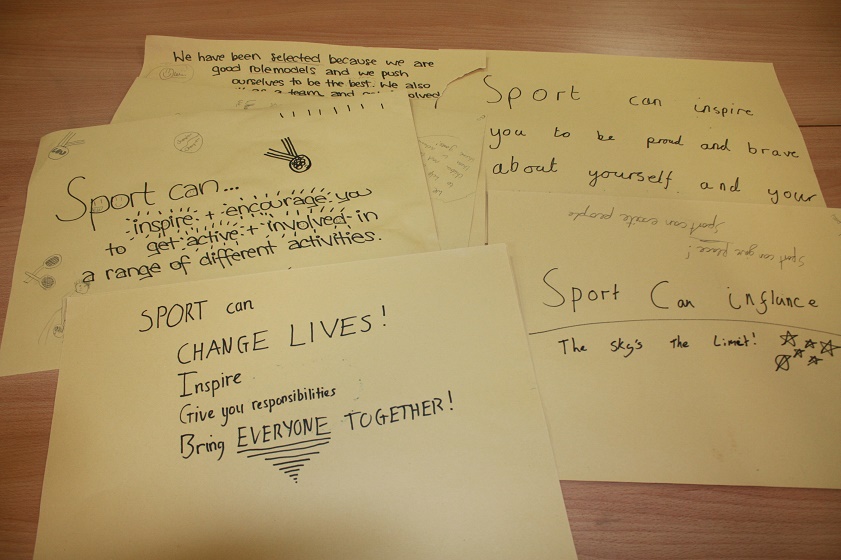 We have been selected because we are
good rolemodels and we push
ourselves to be the best. We also
as a team, and
Sport can inspire
you to be proud and brave
about yourself and your
Sport can...
inspire + encourage you
to get active + involved in
a range of different activities.
Sport can create people
Sport can give peace!
Sport Can influnce
The sky's The Limit!
SPORT can
CHANGE LIVES!
Inspire
Give you responsibilities
Bring EVERYONE TOGETHER!